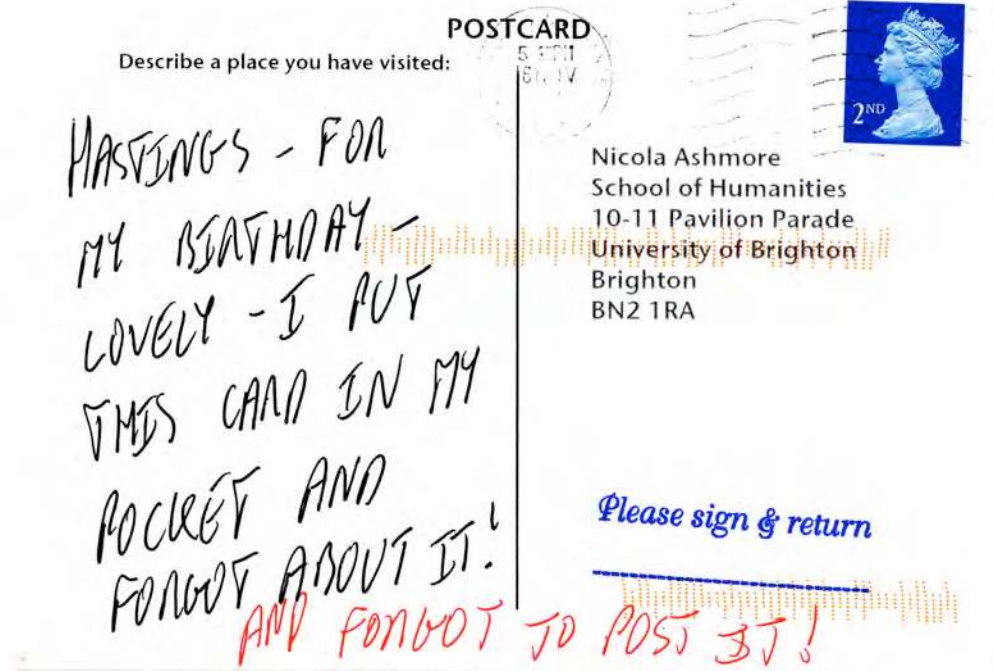 POSTCARD
Describe a place you have visited:
HASTINGS - FOR
MY BIRTHDAY -
LOVELY - I PUT
THIS CARD IN MY
POCKET AND
FORGOT ABOUT IT!
AND FORGOT TO POST IT!
2ND
Nicola Ashmore
School of Humanities
10-11 Pavilion Parade
University of Brighton
Brighton
BN2 1RA
Please sign & return